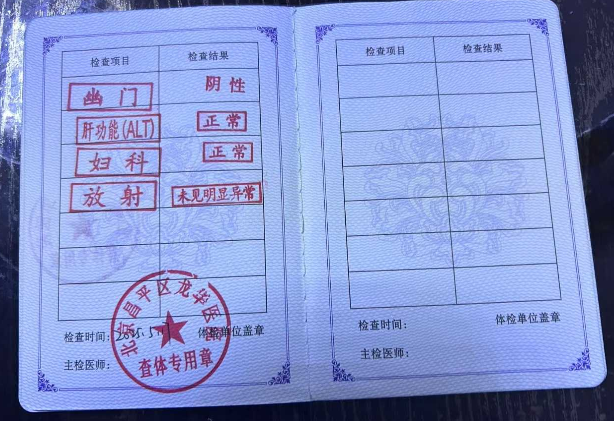 检查项目 检查结果
幽门 阴性
肝功能(ALT) 正常
妇科 正常
放射 未见明显异常
北京昌平区龙华医院
查体专用章
检查时间: 体检单位盖章
主检医师:
检查项目 检查结果
检查时间: 体检单位盖章
主检医师: